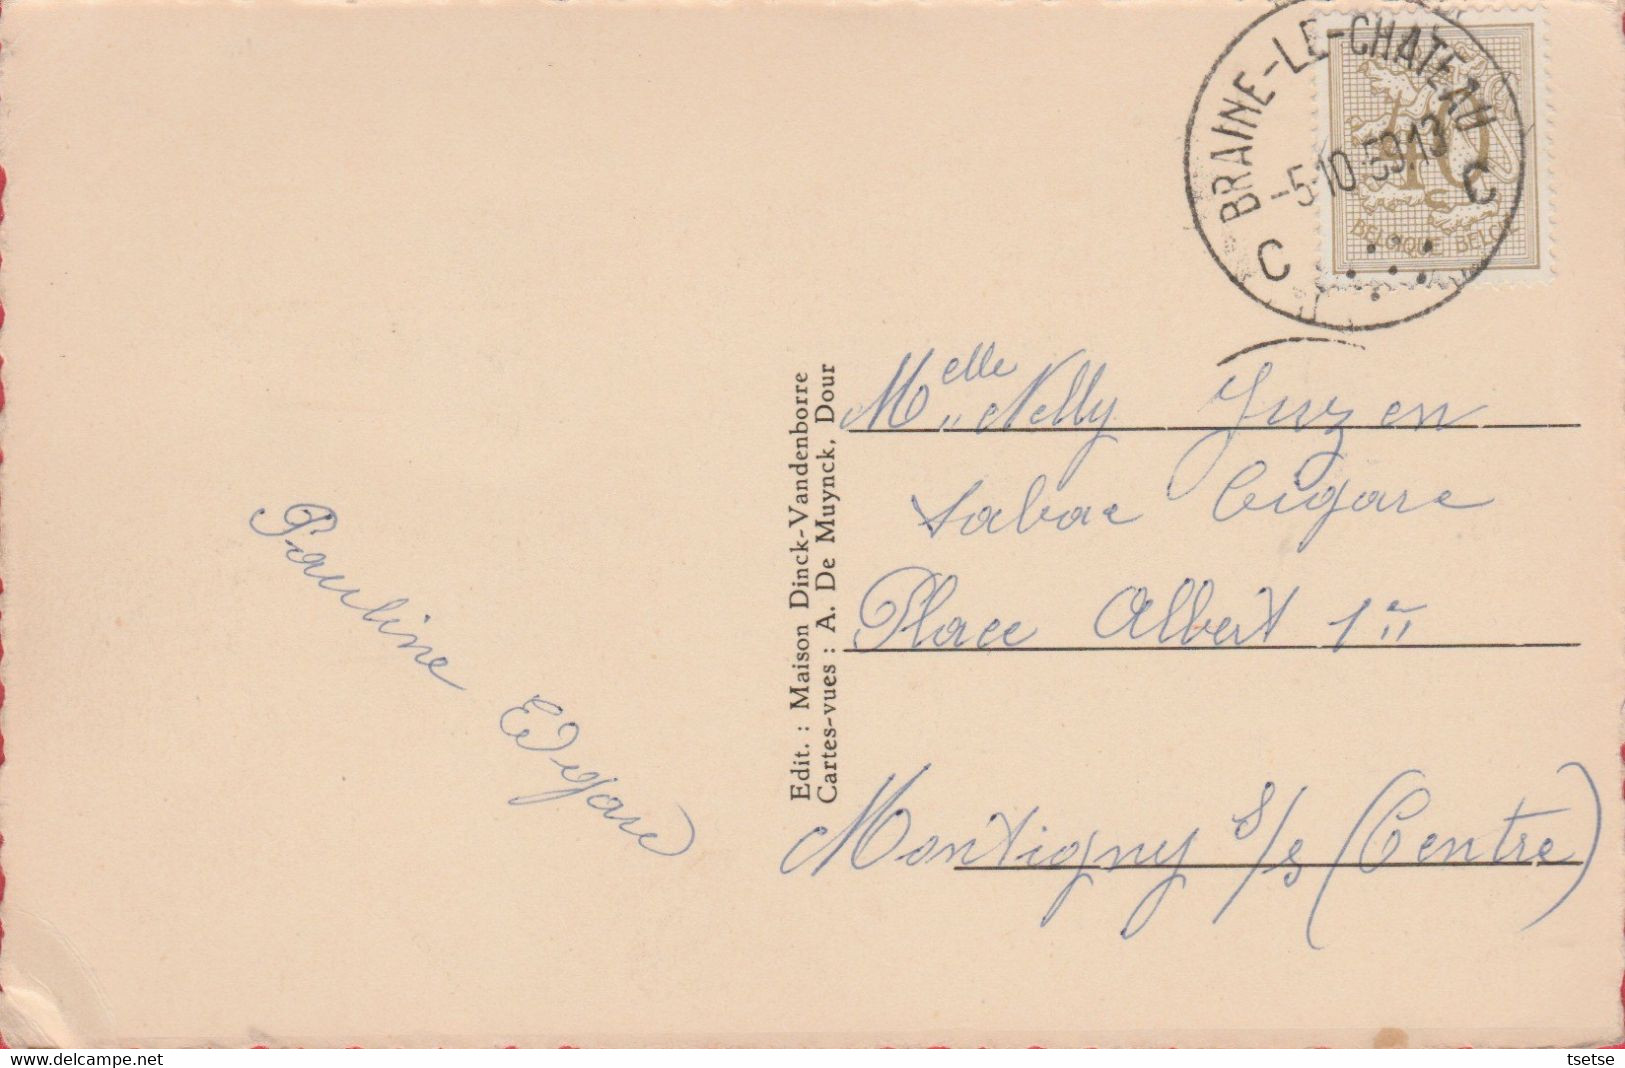 BRAINE-LE-CHATEAU
-5-10-59.13
C C
40
BELGIQUE BELGIE
Melle Nelly
Tabac Cigare
Place Albert 1er
Montigny s/s (Centre)
Pauline Edgard
Edit. : Maison Dinck-Vandenborre
Cartes-vues : A. De Muynck, Dour
www.delcampe.net
tsetse